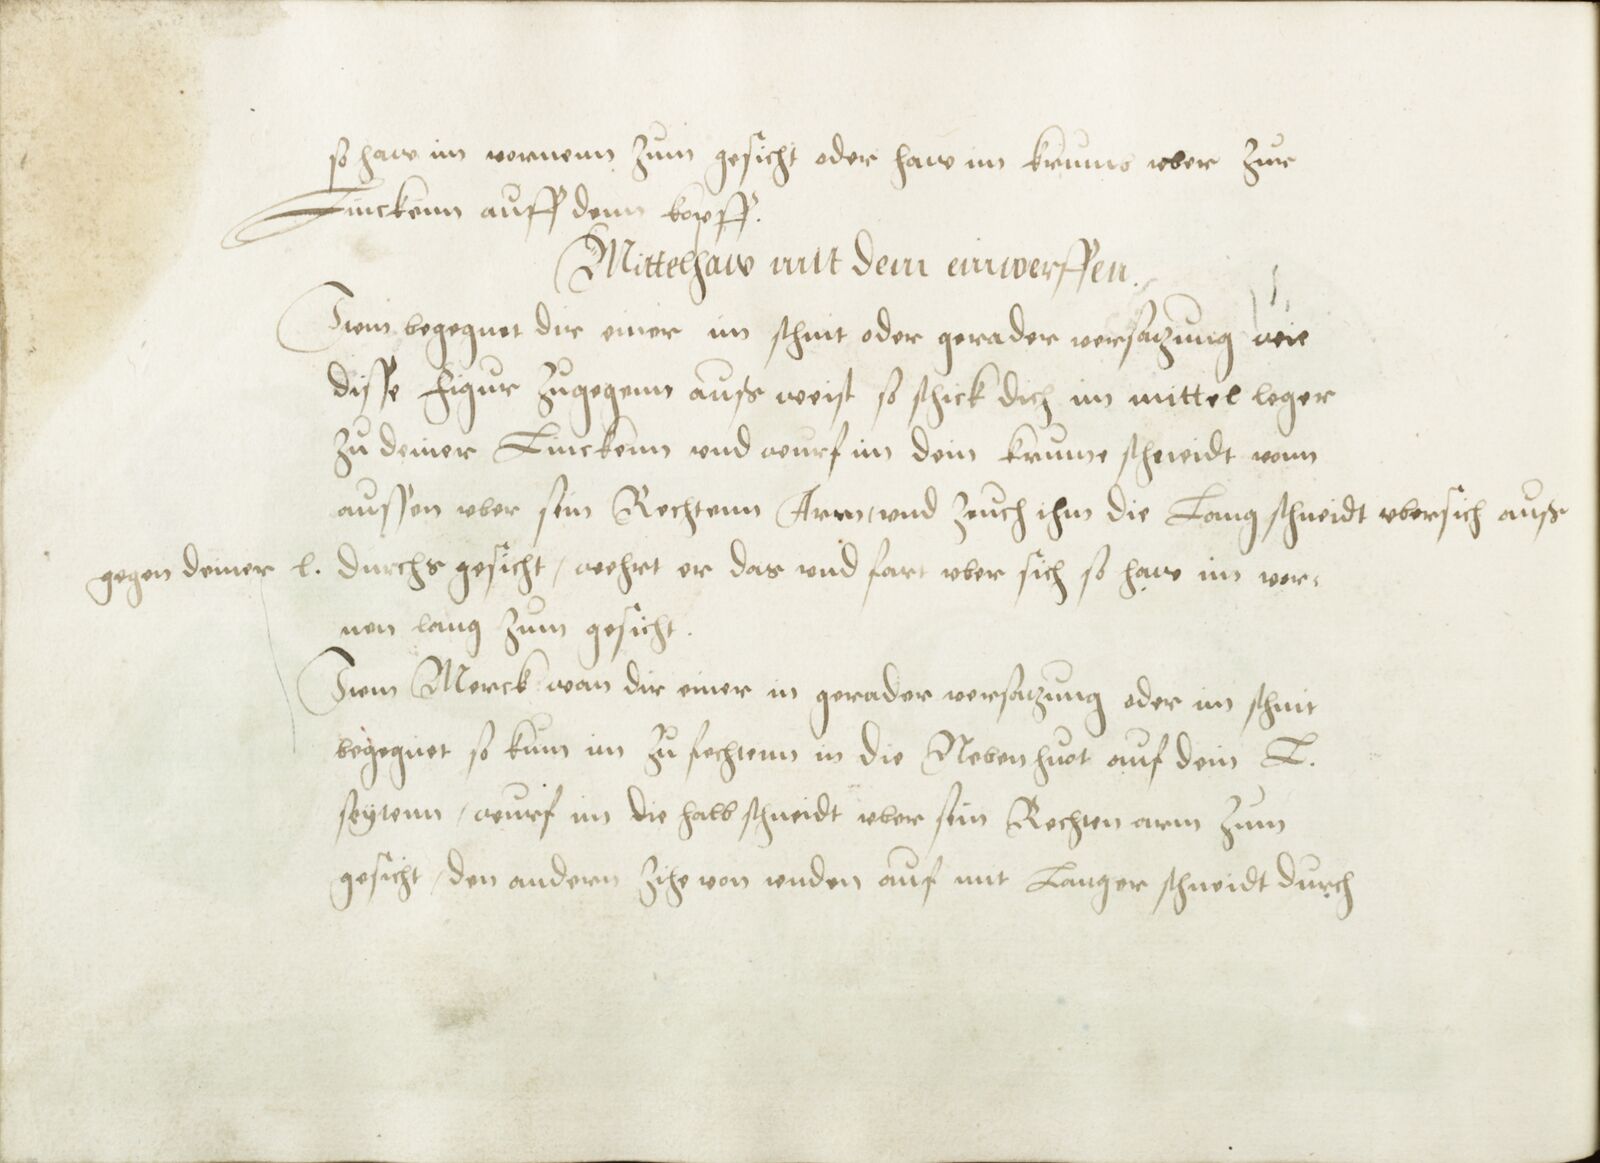 so haw im vornenn zum gesicht oder haw im krums vber zur
Linckenn auff denn kopff.
Mittelhaw mit dem einwerffen.
Item begegnet dir einer im schnit oder gerader versatzung wie
disse figur zugegenn ausß weist so schick dich im mittel leger
zu deiner Linckenn vnd wurf im dein krume schneidt vonn
aussen vber sein Rechtenn Arm vnd zeuch ihm die Lang schneidt vbersich auß
gegen deiner l. durchs gesicht / wehrt er das vnd fart vber sich so haw im vor:
nen lang zum gesicht.
Item Merck wan dir einer in gerader versatzung oder im schnit
begegnet so kum im zu fechtenn in die Nebenhuot auf dein L.
seytenn / wurf im die halb schneidt vber sein Rechten arm zum
gesicht / den andern zihe von vnden auf mit Langer schneidt durch